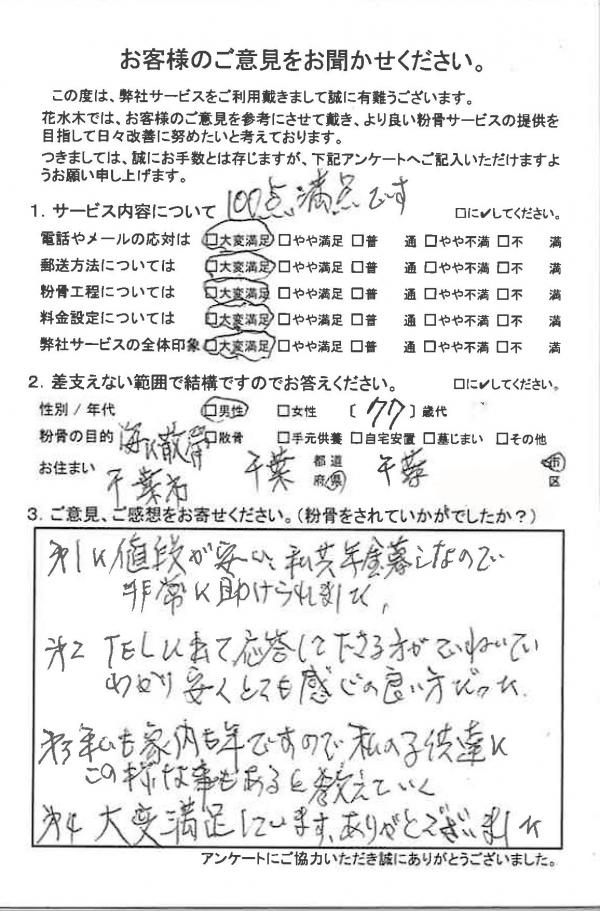 お客様のご意見をお聞かせください。
この度は、弊社サービスをご利用戴きまして誠に有難うございます。
花水木では、お客様のご意見を参考にさせて戴き、より良い粉骨サービスの提供を
目指して日々改善に努めたいと考えております。
つきましては、誠にお手数とは存じますが、下記アンケートへご記入いただけますよ
うお願い申し上げます。
1. サービス内容について 100点満点です □に✔してください。
電話やメールの応対は □大変満足 □やや満足 □普 通 □やや不満 □不 満
郵送方法については □大変満足 □やや満足 □普 通 □やや不満 □不 満
粉骨工程については □大変満足 □やや満足 □普 通 □やや不満 □不 満
料金設定については □大変満足 □やや満足 □普 通 □やや不満 □不 満
弊社サービスの全体印象 □大変満足 □やや満足 □普 通 □やや不満 □不 満
2. 差支えない範囲で結構ですのでお答えください。 □に✔してください。
性別 / 年代 □男性 □女性 〔 77 〕歳代
粉骨の目的 海に散骨 □散骨 □手元供養 □自宅安置 □墓じまい □その他
お住まい 千葉市 千葉 都 道 府 県 千葉 市 区
3. ご意見、ご感想をお寄せください。(粉骨をされていかがでしたか?)
第1に値段が安い、私共年金暮しなので
非常に助けられました。
第2 TELに出て応答して下さる方がていねいでい
わかり安くとても感じの良い方だった.
第3 私も家内も年ですので私の子供達に
この様な事もあると教えていく
第4 大変満足しています、ありがとうございました
アンケートにご協力いただき誠にありがとうございました。